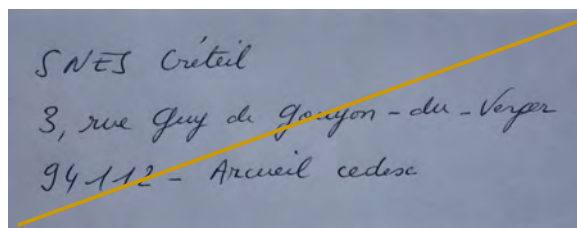 SNES Créteil
3, rue Guy de Gouyon-du-Verger
94112- Arcueil cedex